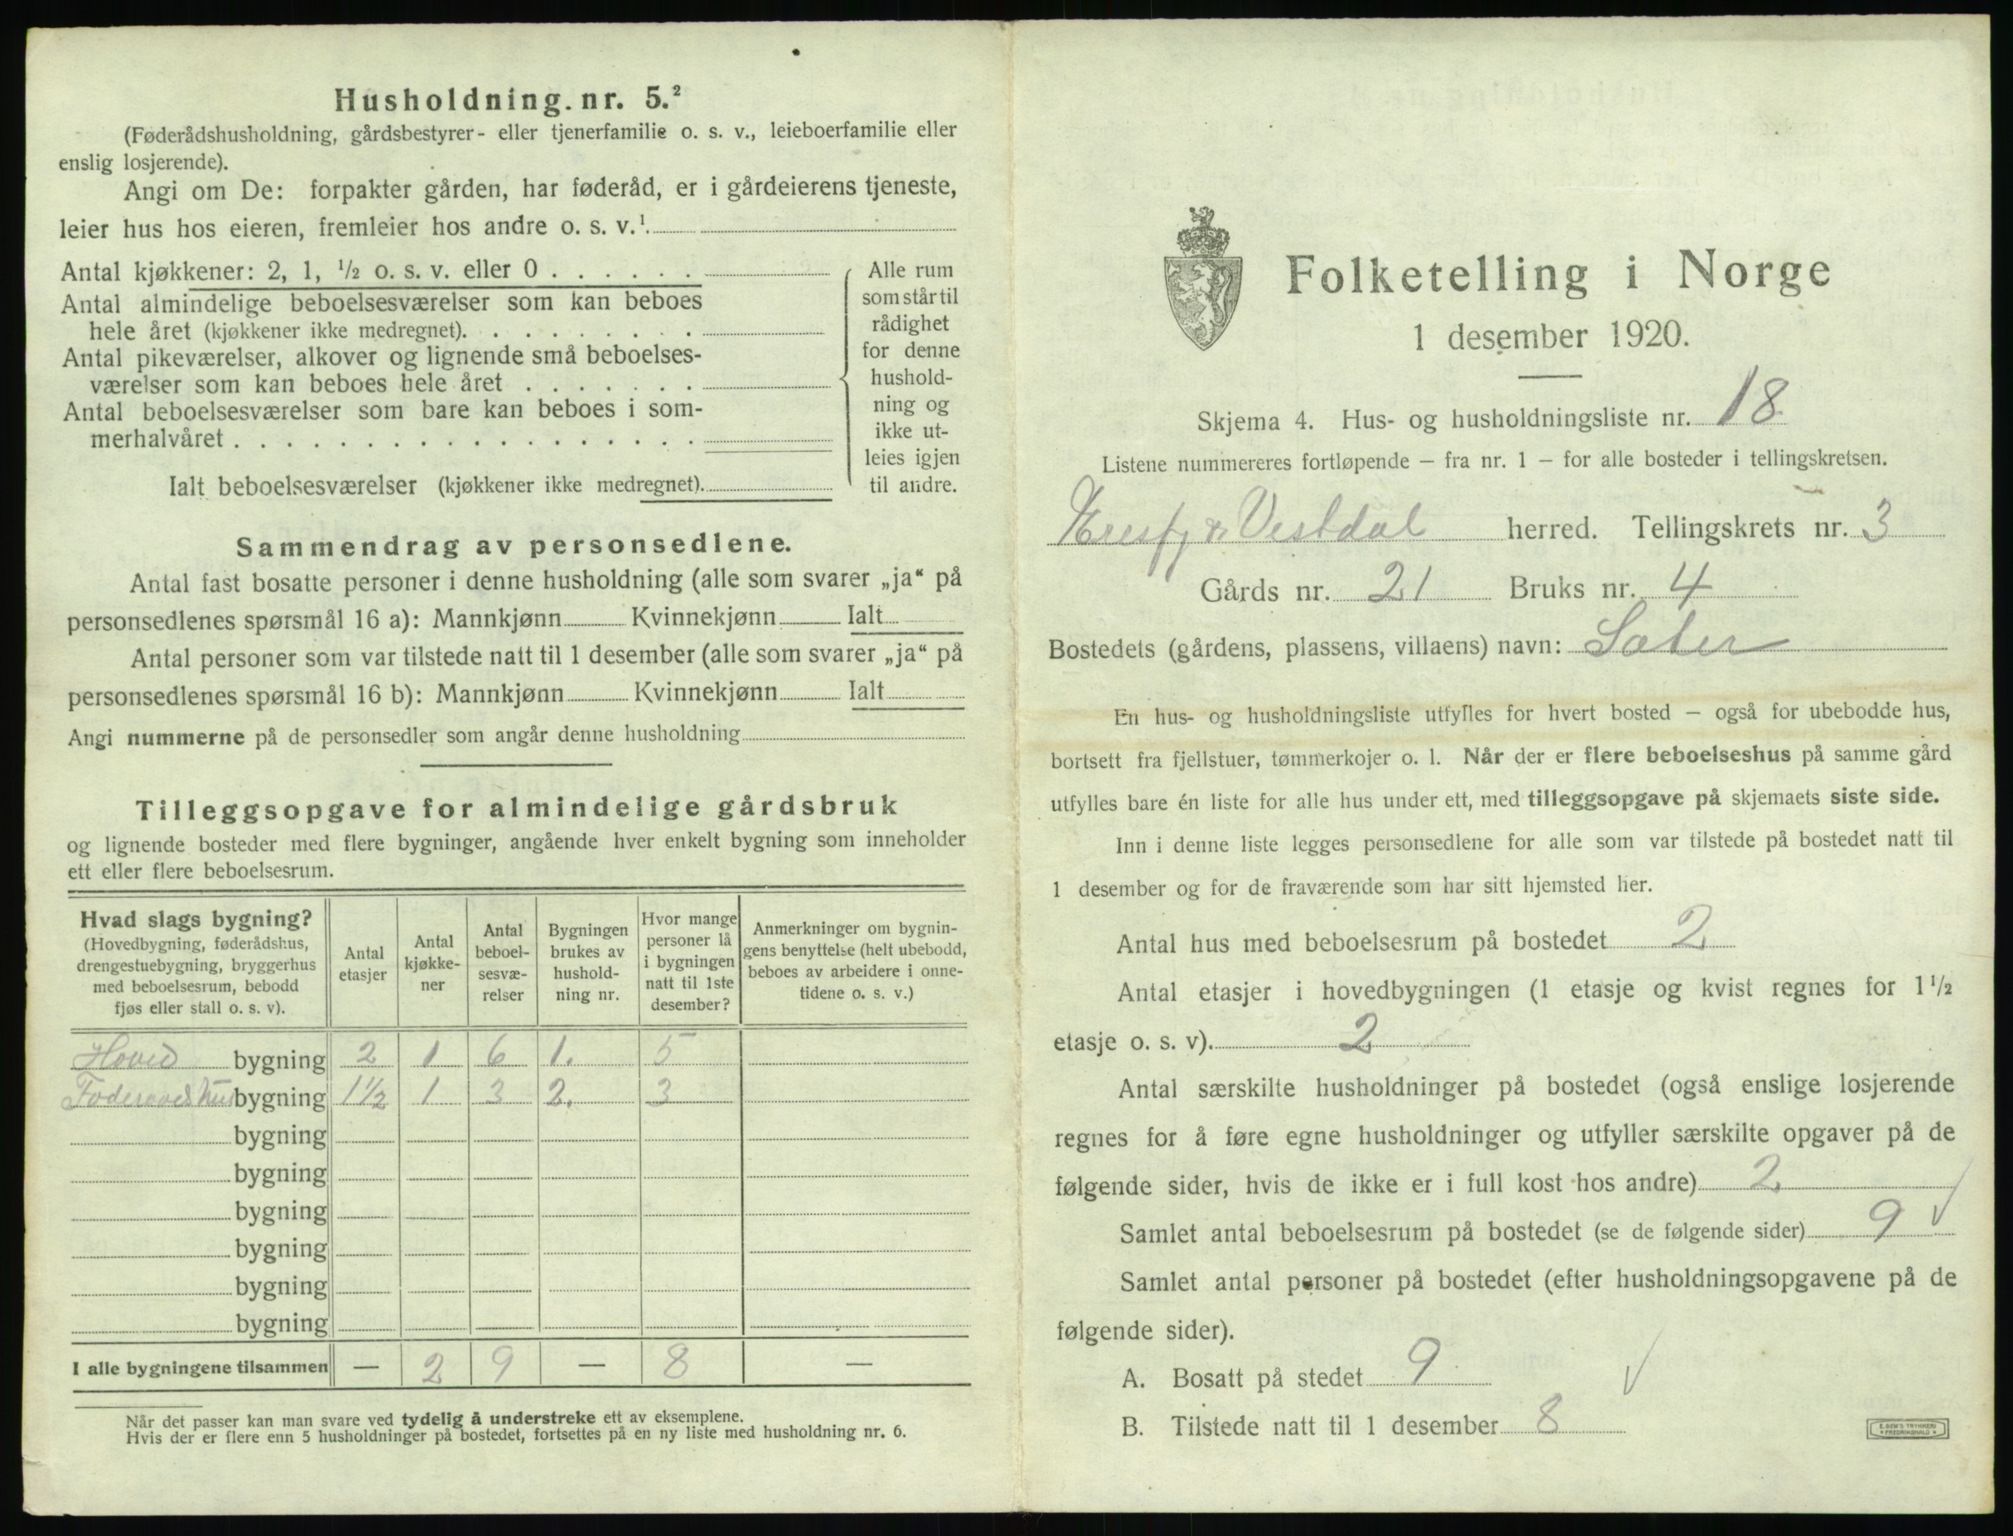 Husholdning. nr. 5.²
(Føderådshusholdning, gårdsbestyrer- eller tjenerfamilie o. s. v., leieboerfamilie eller
enslig losjerende).
Angi om De: forpakter gården, har føderåd, er i gårdeierens tjeneste,
leier hus hos eieren, fremleier hos andre o. s. v.¹
Antal kjøkkener: 2, 1, ½ o. s. v. eller 0 . . . . . .
Antal almindelige beboelsesværelser som kan beboes
hele året (kjøkkener ikke medregnet). . . . . . . . .
Antal pikeværelser, alkover og lignende små beboelses-
værelser som kan beboes hele året . . . . . . .
Antal beboelsesværelser som bare kan beboes i som-
merhalvåret . . . . . . . . . . . . . . . .
Ialt beboelsesværelser (kjøkkener ikke medregnet).
Alle rum
som står til
rådighet
for denne
hushold-
ning og
ikke ut-
leies igjen
til andre.
Sammendrag av personsedlene.
Antal fast bosatte personer i denne husholdning (alle som svarer „ja“ på
personsedlenes spørsmål 16 a): Mannkjønn Kvinnekjønn Ialt
Antal personer som var tilstede natt til 1 desember (alle som svarer „ja“ på
personsedlenes spørsmål 16 b): Mannkjønn Kvinnekjønn Ialt
Angi nummerne på de personsedler som angår denne husholdning
Tilleggsopgave for almindelige gårdsbruk
og lignende bosteder med flere bygninger, angående hver enkelt bygning som inneholder
ett eller flere beboelsesrum.
Hvad slags bygning?
(Hovedbygning, føderådshus,
drengestuebygning, bryggerhus
med beboelsesrum, bebodd
fjøs eller stall o. s. v).
Antal
etasjer
Antal
kjøkke-
ner
Antal
beboel-
sesvæ-
relser
Bygningen
brukes av
hushold-
ning nr.
Hvor mange
personer lå
i bygningen
natt til 1ste
desember?
Anmerkninger om bygnin-
gens benyttelse (helt ubebodd,
beboes av arbeidere i onne-
tidene o. s. v.)
Hoved bygning 2 1 6 1. 5
Føderaadshus bygning 1½ 1 3 2. 3
bygning
bygning
bygning
bygning
bygning
bygning
I alle bygningene tilsammen — 2 9 — 8 —
Når det passer kan man svare ved tydelig å understreke ett av eksemplene.
Hvis der er flere enn 5 husholdninger på bostedet, fortsettes på en ny liste med husholdning nr. 6.
Folketelling i Norge
1 desember 1920.
Skjema 4. Hus- og husholdningsliste nr. 18
Listene nummereres fortløpende – fra nr. 1 – for alle bosteder i tellingskretsen.
Eresfj & Vestdal herred. Tellingskrets nr. 3
Gårds nr. 21 Bruks nr. 4
Bostedets (gårdens, plassens, villaens) navn: Sæter
En hus- og husholdningsliste utfylles for hvert bosted – også for ubebodde hus,
bortsett fra fjellstuer, tømmerkojer o. l. Når der er flere beboelseshus på samme gård
utfylles bare én liste for alle hus under ett, med tilleggsopgave på skjemaets siste side.
Inn i denne liste legges personsedlene for alle som var tilstede på bostedet natt til
1 desember og for de fraværende som har sitt hjemsted her.
Antal hus med beboelsesrum på bostedet 2
Antal etasjer i hovedbygningen (1 etasje og kvist regnes for 1½
etasje o. s. v). 2
Antal særskilte husholdninger på bostedet (også enslige losjerende
regnes for å føre egne husholdninger og utfyller særskilte opgaver på de
følgende sider, hvis de ikke er i full kost hos andre) 2
Samlet antal beboelsesrum på bostedet (se de følgende sider) 9
Samlet antal personer på bostedet (efter husholdningsopgavene på de
følgende sider).
A. Bosatt på stedet 9
B. Tilstede natt til 1 desember 8
E. SEM'S TRYKKERI
FREDRIKSHALD